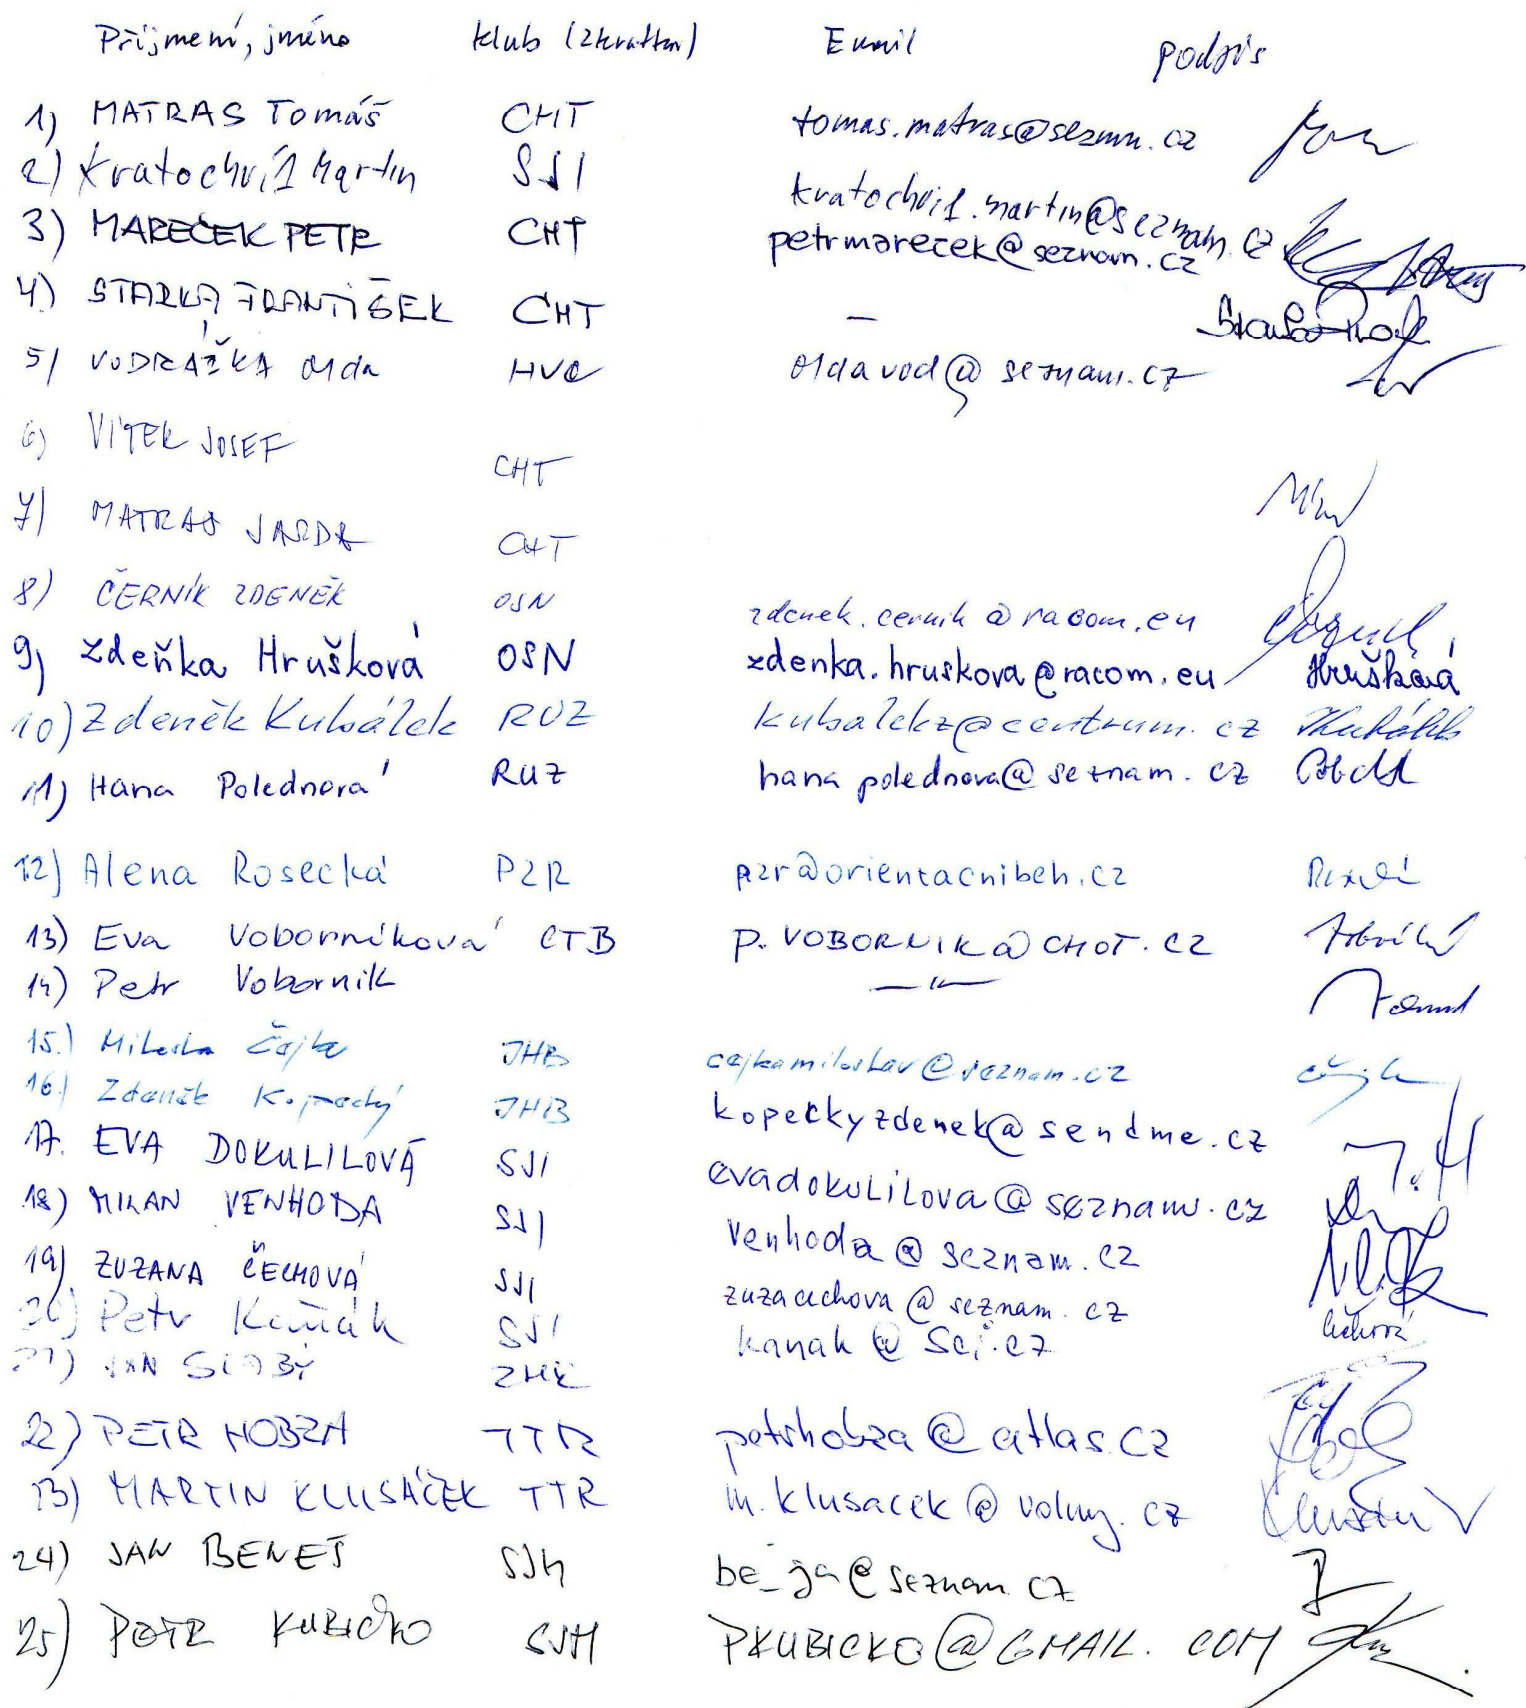 Příjmení, jméno klub (zkratka) Email podpis
1) MATRAS Tomáš CHT tomas.matras@seznam.cz
2) Kratochvíl Martin SJI kratochvil.martin@seznam.cz
3) MAREČEK PETR CHT petrmarecek@seznam.cz
4) STARKA FRANTIŠEK CHT –
5) VODRÁŽKA Olda HVO oldavod@seznam.cz
6) VÍTEK JOSEF CHT
7) MATRAS JARDA CHT
8) ČERNÍK ZDENĚK OSN zdenek.cernik@racom.eu
9) Zdeňka Hrušková OSN zdenka.hruskova@racom.eu Hrušková
10) Zdeněk Kubálek RUZ kubalekz@centrum.cz
11) Hana Polednová RUZ hana polednova@seznam.cz
12) Alena Rosecká PZR pzr@orientacnibeh.cz
13) Eva Voborníková CTB p.VOBORNIK@CHOT.CZ
14) Petr Voborník —"—
15.) Čajka JHB cajkamiloslav@seznam.cz
16.) Zdeněk Kopecký JHB kopeckyzdenek@sendme.cz
17. EVA DOKULILOVÁ SJI evadokulilova@seznam.cz
18) MILAN VENHODA SJI venhoda@seznam.cz
19) ZUZANA ČECHOVÁ SJI zuzacechova@seznam.cz
20) Petr Kaňák SJI kanak@sci.cz
21) JAN SLABÝ
22) PETR HOBZA TTR petrhobza@atlas.cz
23) MARTIN KLUSÁČEK TTR m.klusacek@volny.cz
24) JAN BENEŠ SJH be_ja@seznam.cz
25) PETR KUBIČKO SJH PKUBICKO@GMAIL.COM